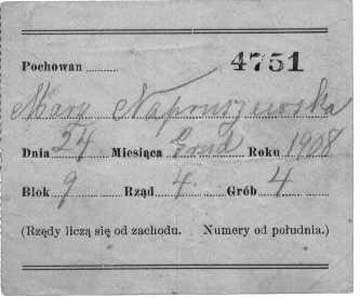 Pochowan ........ 4751
Mary Napruszewska
Dnia 24 Miesiąca Grud Roku 1908
Blok 9 Rząd 4 Grób 4
(Rzędy liczą się od zachodu. Numery od południa.)